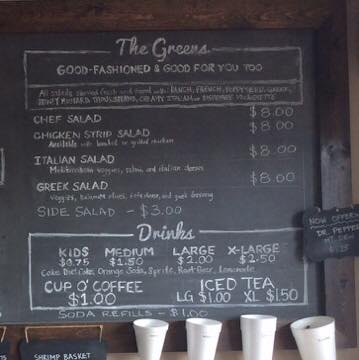 The Greens
GOOD-FASHIONED & GOOD FOR YOU TOO
All salads served fresh and mixed with: RANCH, FRENCH, POPPYSEED,
HONEY MUSTARD, CREAMY ITALIAN or VINAIGRETTE
CHEF SALAD $8.00
CHICKEN STRIP SALAD $8.00
Available with breaded or grilled chicken
ITALIAN SALAD $8.00
Mediterranean veggies, salami and italian cheeses
GREEK SALAD $8.00
Veggies, kalamata olives, feta cheese, and greek dressing
SIDE SALAD - $3.00
Drinks
KIDS MEDIUM LARGE X-LARGE
$0.75 $1.50 $2.00 $2.50
Coke, Diet Coke, Orange Soda, Sprite, Root Beer, Lemonade
CUP O' COFFEE ICED TEA
$1.00 LG $1.00 XL $1.50
SODA REFILLS - $1.00
NOW OFFERING
DR. PEPPER
MT. DEW
$1.25
SHRIMP BASKET